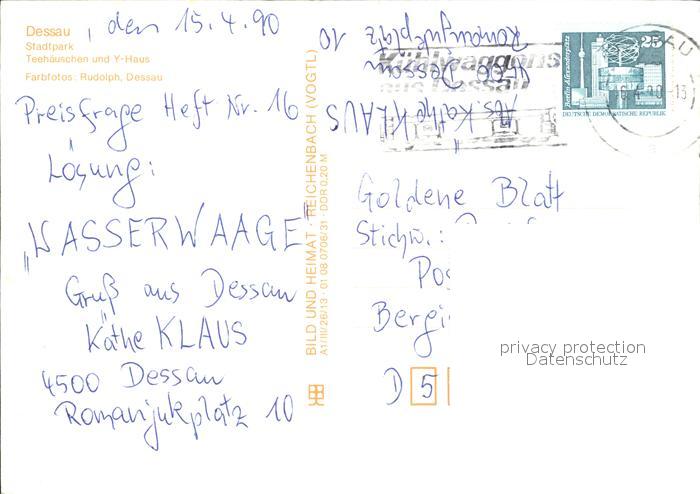 Dessau, den 15.4.90
Stadtpark
Teehäuschen und Y-Haus
Farbfotos: Rudolph, Dessau
Preisfrage Heft Nr. 16
Lösung:
"WASSERWAAGE"
Gruß aus Dessau
Käthe KLAUS
4500 Dessau
Romanjukplatz 10
BILD UND HEIMAT · REICHENBACH (VOGTL)
A1/III/26/13 · 01 08 0706/31 · DDR 0,20 M
Abs. Käthe KLAUS
4500 Dessau
Romanjukplatz 10
Kühlwaggons
aus Dessau
Berlin, Alexanderplatz
25
DEUTSCHE DEMOKRATISCHE REPUBLIK
Goldene Blatt
Stichw.:
Pos
Bergi
D 5
privacy protection
Datenschutz